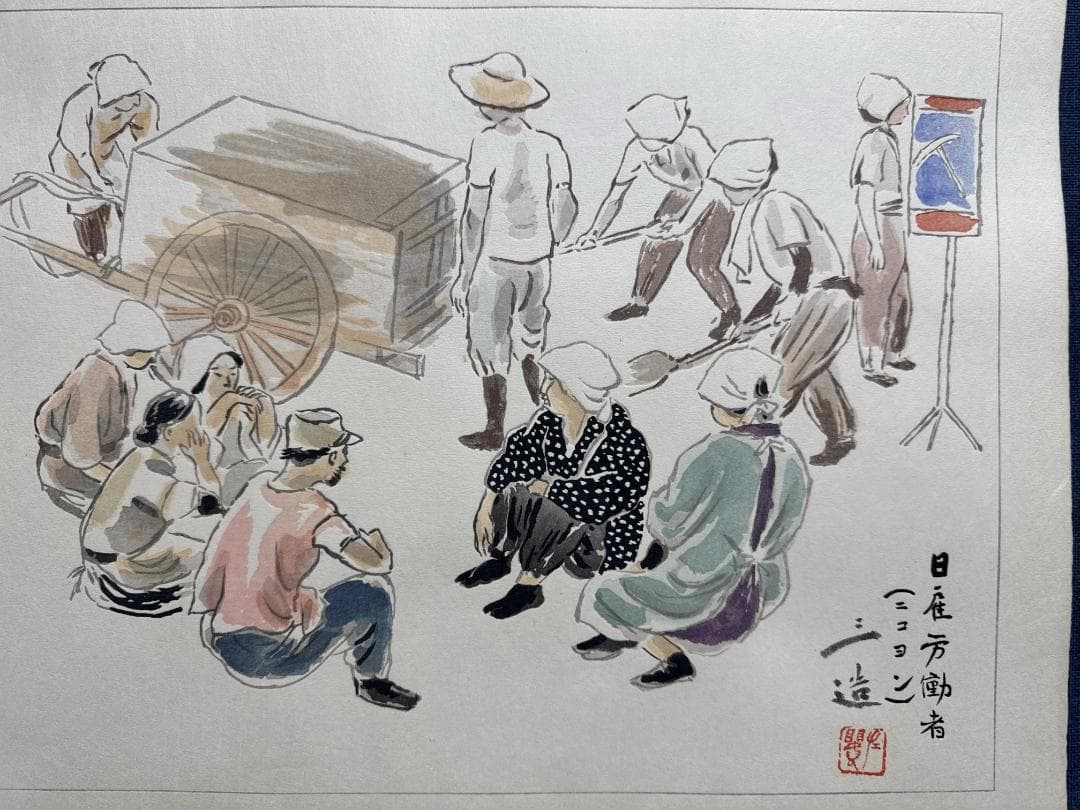 日雇労働者
(ニコヨン)
三造